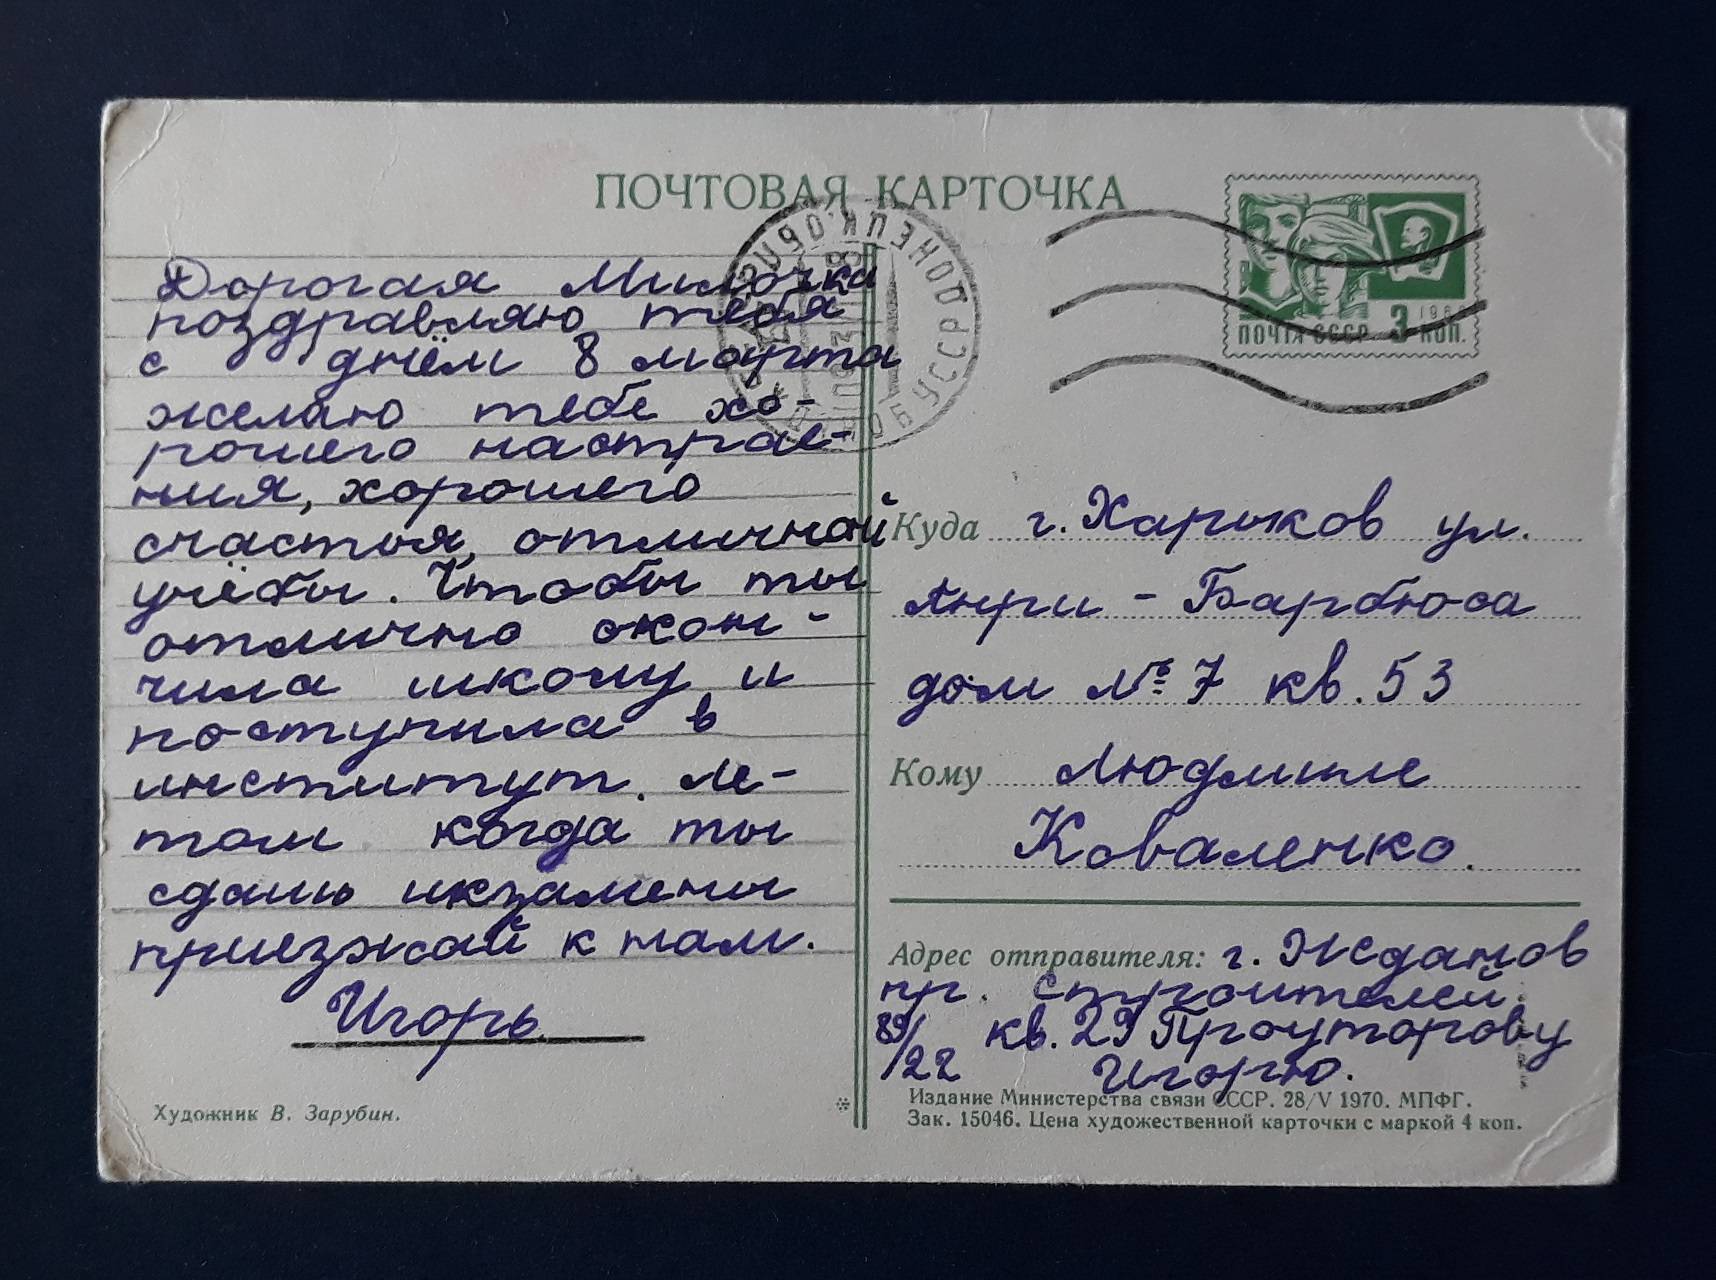 ПОЧТОВАЯ КАРТОЧКА
Дорогая Милочка
поздравляю тебя
с днём 8 марта
желаю тебе хо-
рошего настрае-
ния, хорошего
счастья, отличной
учёбы. Чтобы ты
отлично окон-
чила школу и
поступила в
институт. Ле-
том когда ты
сдашь икзамены
приезжай к нам.
Игорь
Художник В. Зарубин.
ПОЧТА СССР 3 КОП.
УССР
Куда г. Харьков ул.
Анри - Барбюса
дом № 7 кв. 53
Кому Людмиле
Коваленко.
Адрес отправителя: г. Жданов
пр. Строителей.
89/22 кв. 29
Игорю.
Издание Министерства связи СССР. 28/V 1970. МПФГ.
Зак. 15046. Цена художественной карточки с маркой 4 коп.